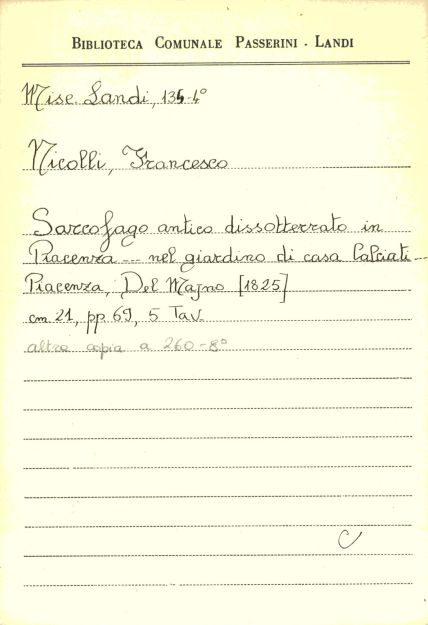 BIBLIOTECA COMUNALE PASSERINI - LANDI
Misc. Landi, 134-4°
Nicolli, Francesco
Sarcofago antico dissotterrato in
Piacenza --- nel giardino di casa Calciati ---
Piacenza, Del Majno [1825]
cm 21, pp 69, 5 Tav.
altra copia a 260-8°
C